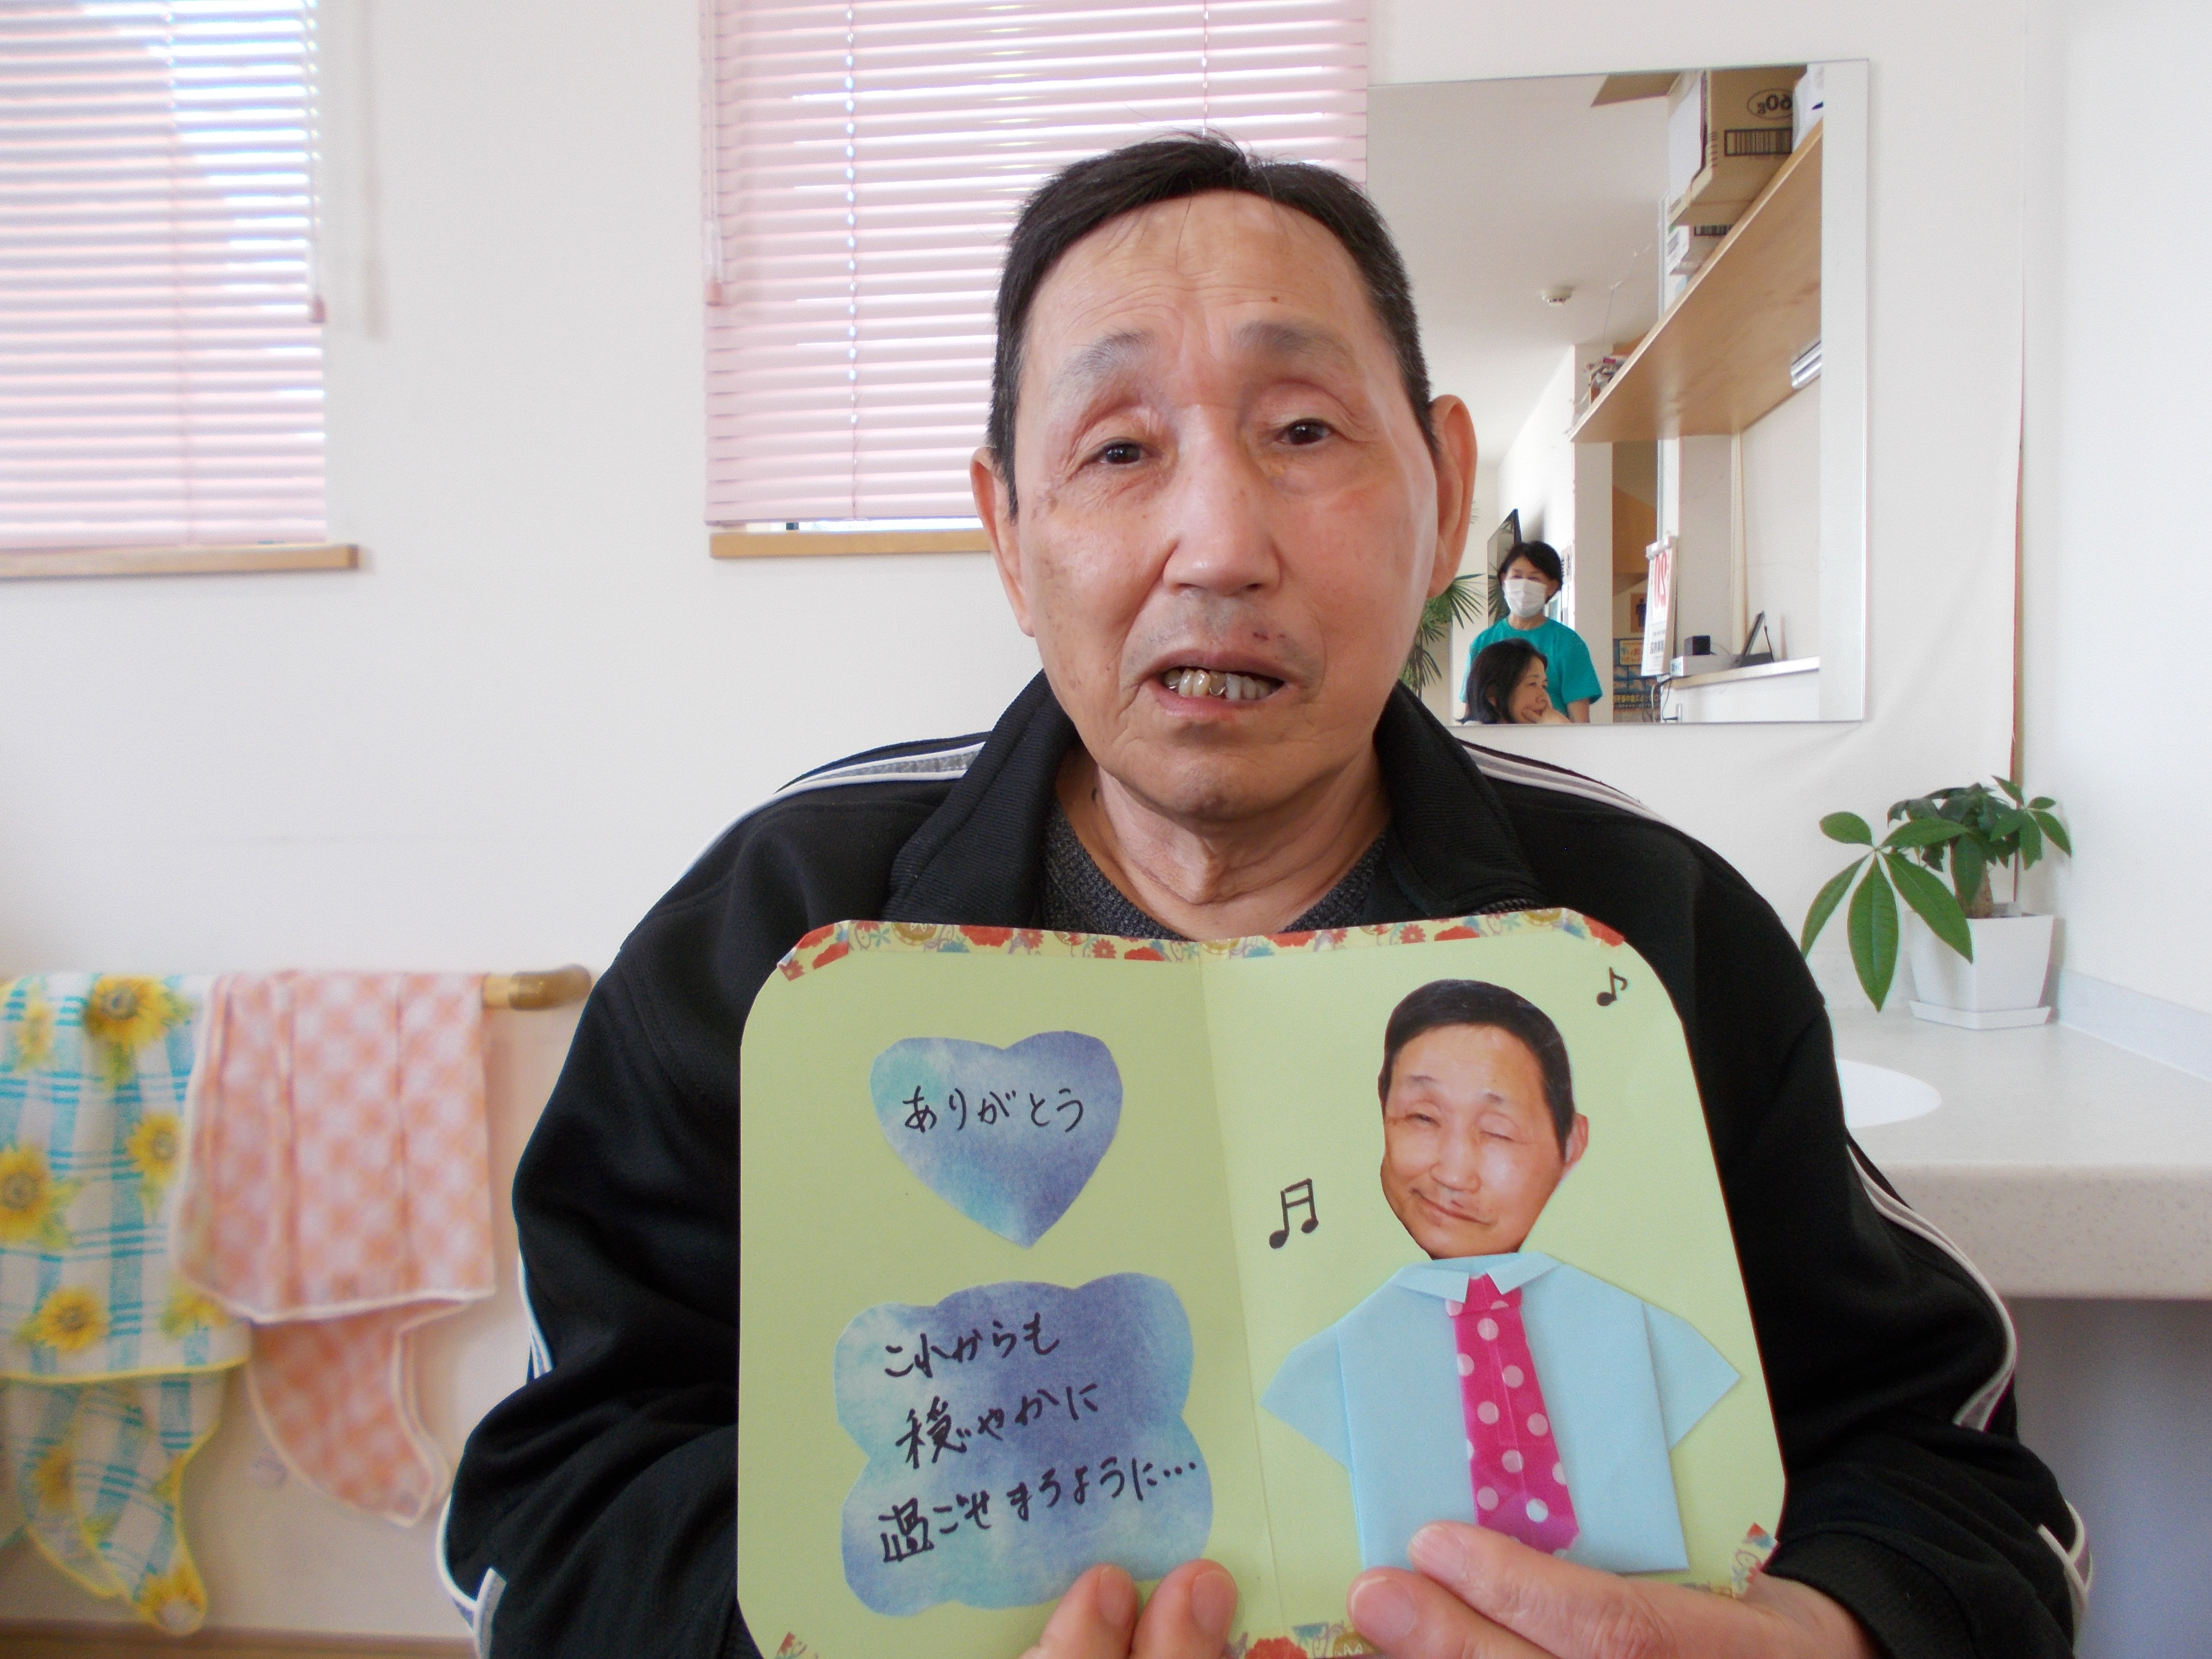 ありがとう
これからも
穏やかに
過ごせますように…
60g